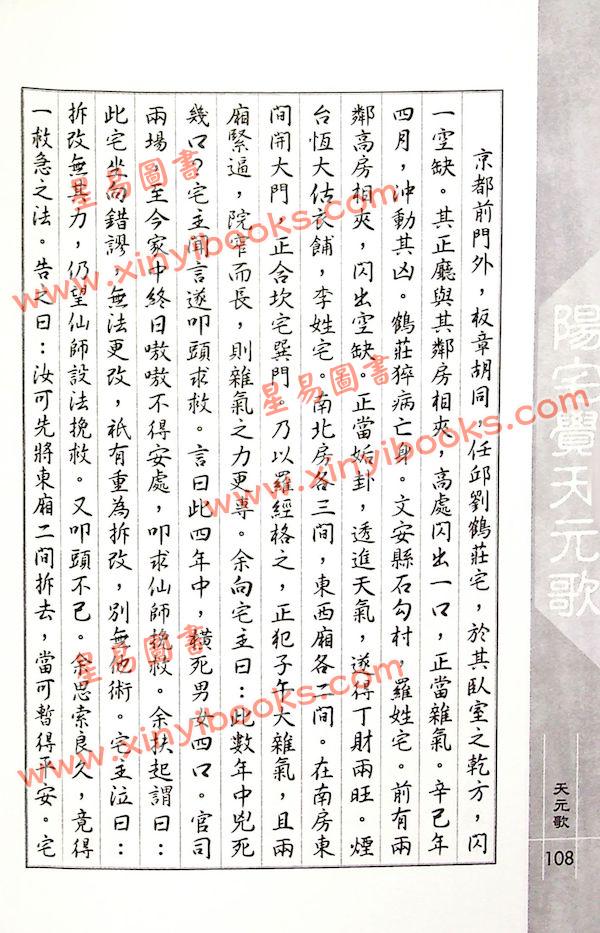 京都前門外，板章胡同，任邱劉鶴莊宅，於其臥室之乾方，閃
一空缺。其正廳與其鄰房相夾，高處閃出一口，正當雜氣。辛巳年
四月，沖動其凶。鶴莊猝病亡身。文安縣石勾村，羅姓宅。前有兩
鄰高房相夾，閃出空缺。正當姤卦，透進天氣，遂得丁財兩旺。煙
台恆大估衣舖，李姓宅。南北房各三間，東西廂各二間。在南房東
間開大門，正合坎宅巽門。乃以羅經格之，正犯子午大雜氣，且兩
廂緊逼，院窄而長，則雜氣之力更專。余向宅主曰：此數年中兇死
幾口？宅主聞言遂叩頭求救。言曰此四年中，橫死男女四口。官司
兩場，至今家中終日嗷嗷不得安處，叩求仙師挽救。余扶起謂曰：
此宅坐向錯謬，無法更改，祇有重為拆改，別無他術。宅主泣曰：
拆改無其力，仍望仙師設法挽救。又叩頭不已。余思索良久，竟得
一救急之法。告之曰：汝可先將東廂二間拆去，當可暫得平安。宅
陽宅覺天元歌
天元歌
108
星易圖書
www.xinyibooks.com
星易圖書
www.xinyibooks.com
星易圖書
www.xinyibooks.com